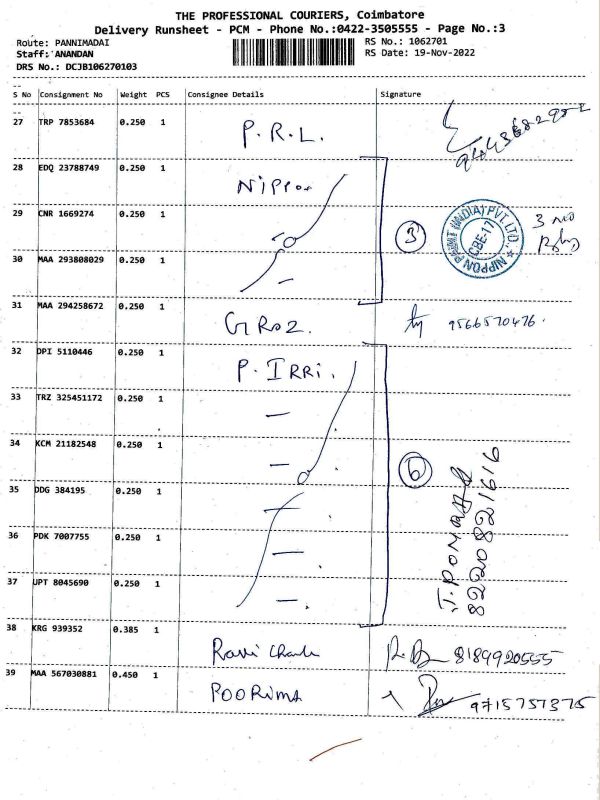 THE PROFESSIONAL COURIERS, Coimbatore
Delivery Runsheet - PCM - Phone No.:0422-3505555 - Page No.:3
Route: PANNIMADAI RS No.: 1062701
Staff: ANANDAN RS Date: 19-Nov-2022
DRS No.: DCJB106270103
S No Consignment No Weight PCS Consignee Details Signature
27 TRP 7853684 0.250 1 P.R.L.
28 EDQ 23788749 0.250 1 Nippon
29 CNR 1669274 0.250 1
3
NIPPON PAINT (INDIA) PVT. LTD. CBE-17
3 nos
30 MAA 293808029 0.250 1
31 MAA 294258672 0.250 1 GROZ. 9566570476.
32 DPI 5110446 0.250 1 P. IRRi.
33 TRZ 325451172 0.250 1
34 KCM 21182548 0.250 1
6
8220821616
35 DDG 384195 0.250 1
36 PDK 7007755 0.250 1
37 JPT 8045690 0.250 1
38 KRG 939352 0.385 1 8189920555
39 MAA 567030881 0.450 1 POORimA 9715757375